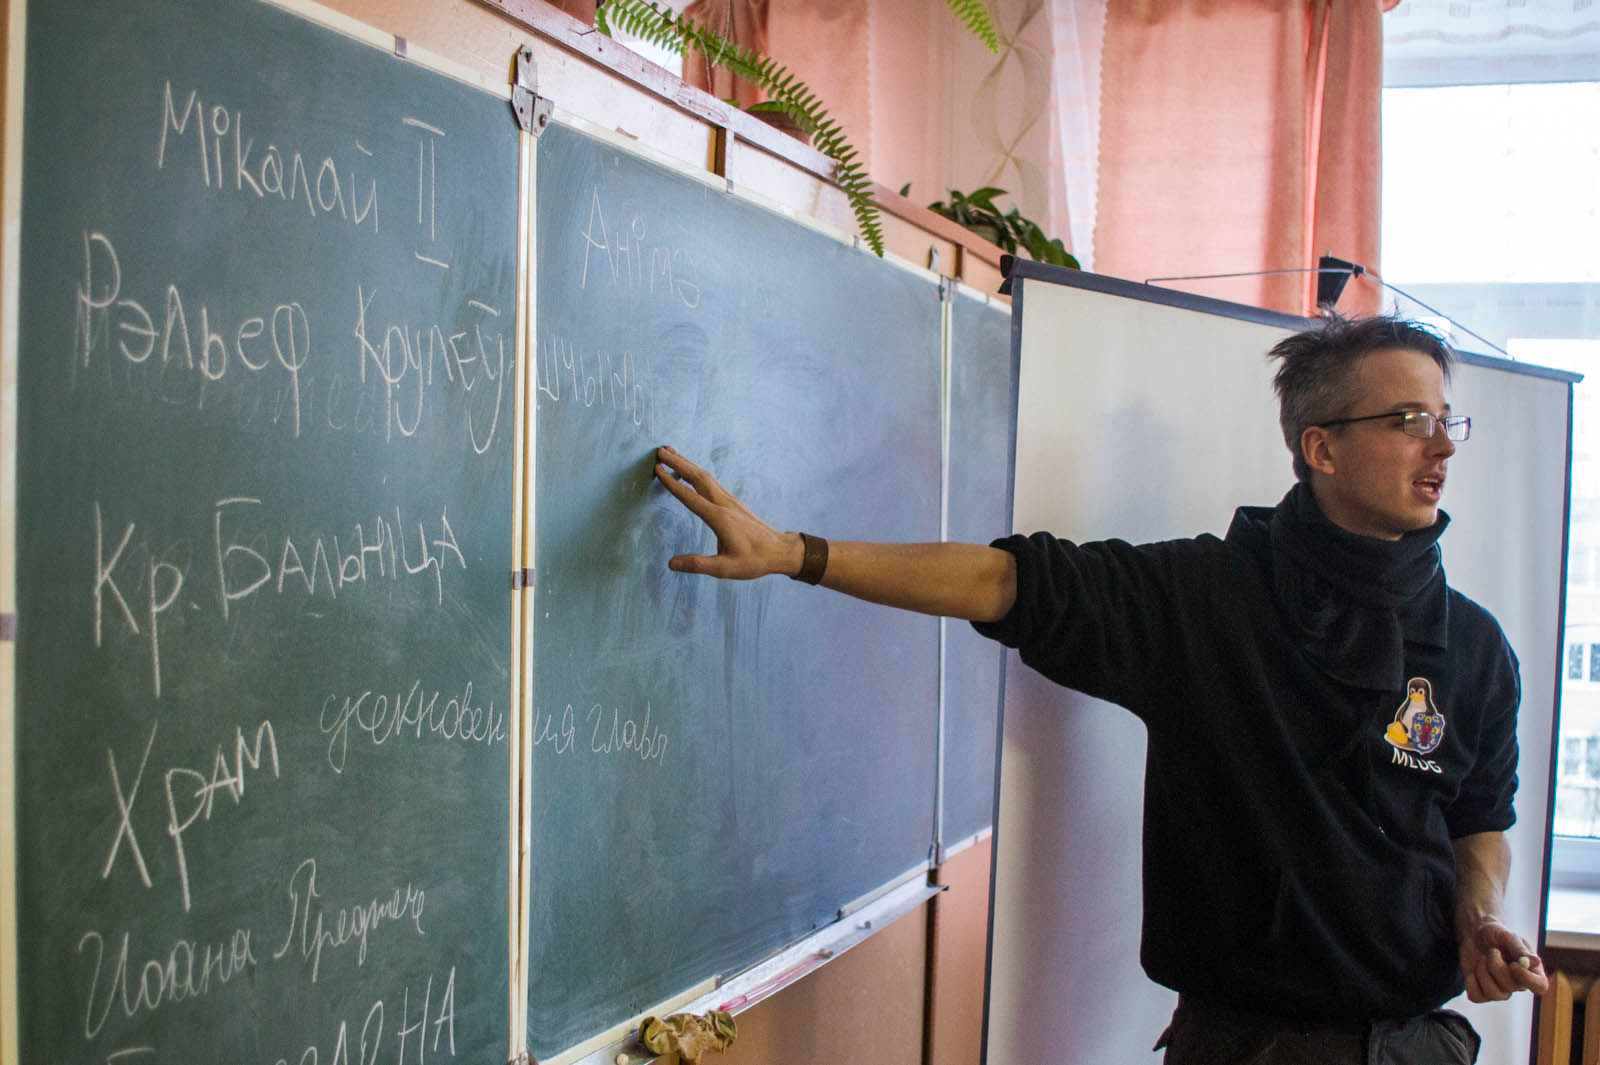 Мікалай II
Анімэ
Рэльеф Крупеўшчыны
Кр. Бальніца
Храм усекновения главы
Иоана Предтече
MLUG